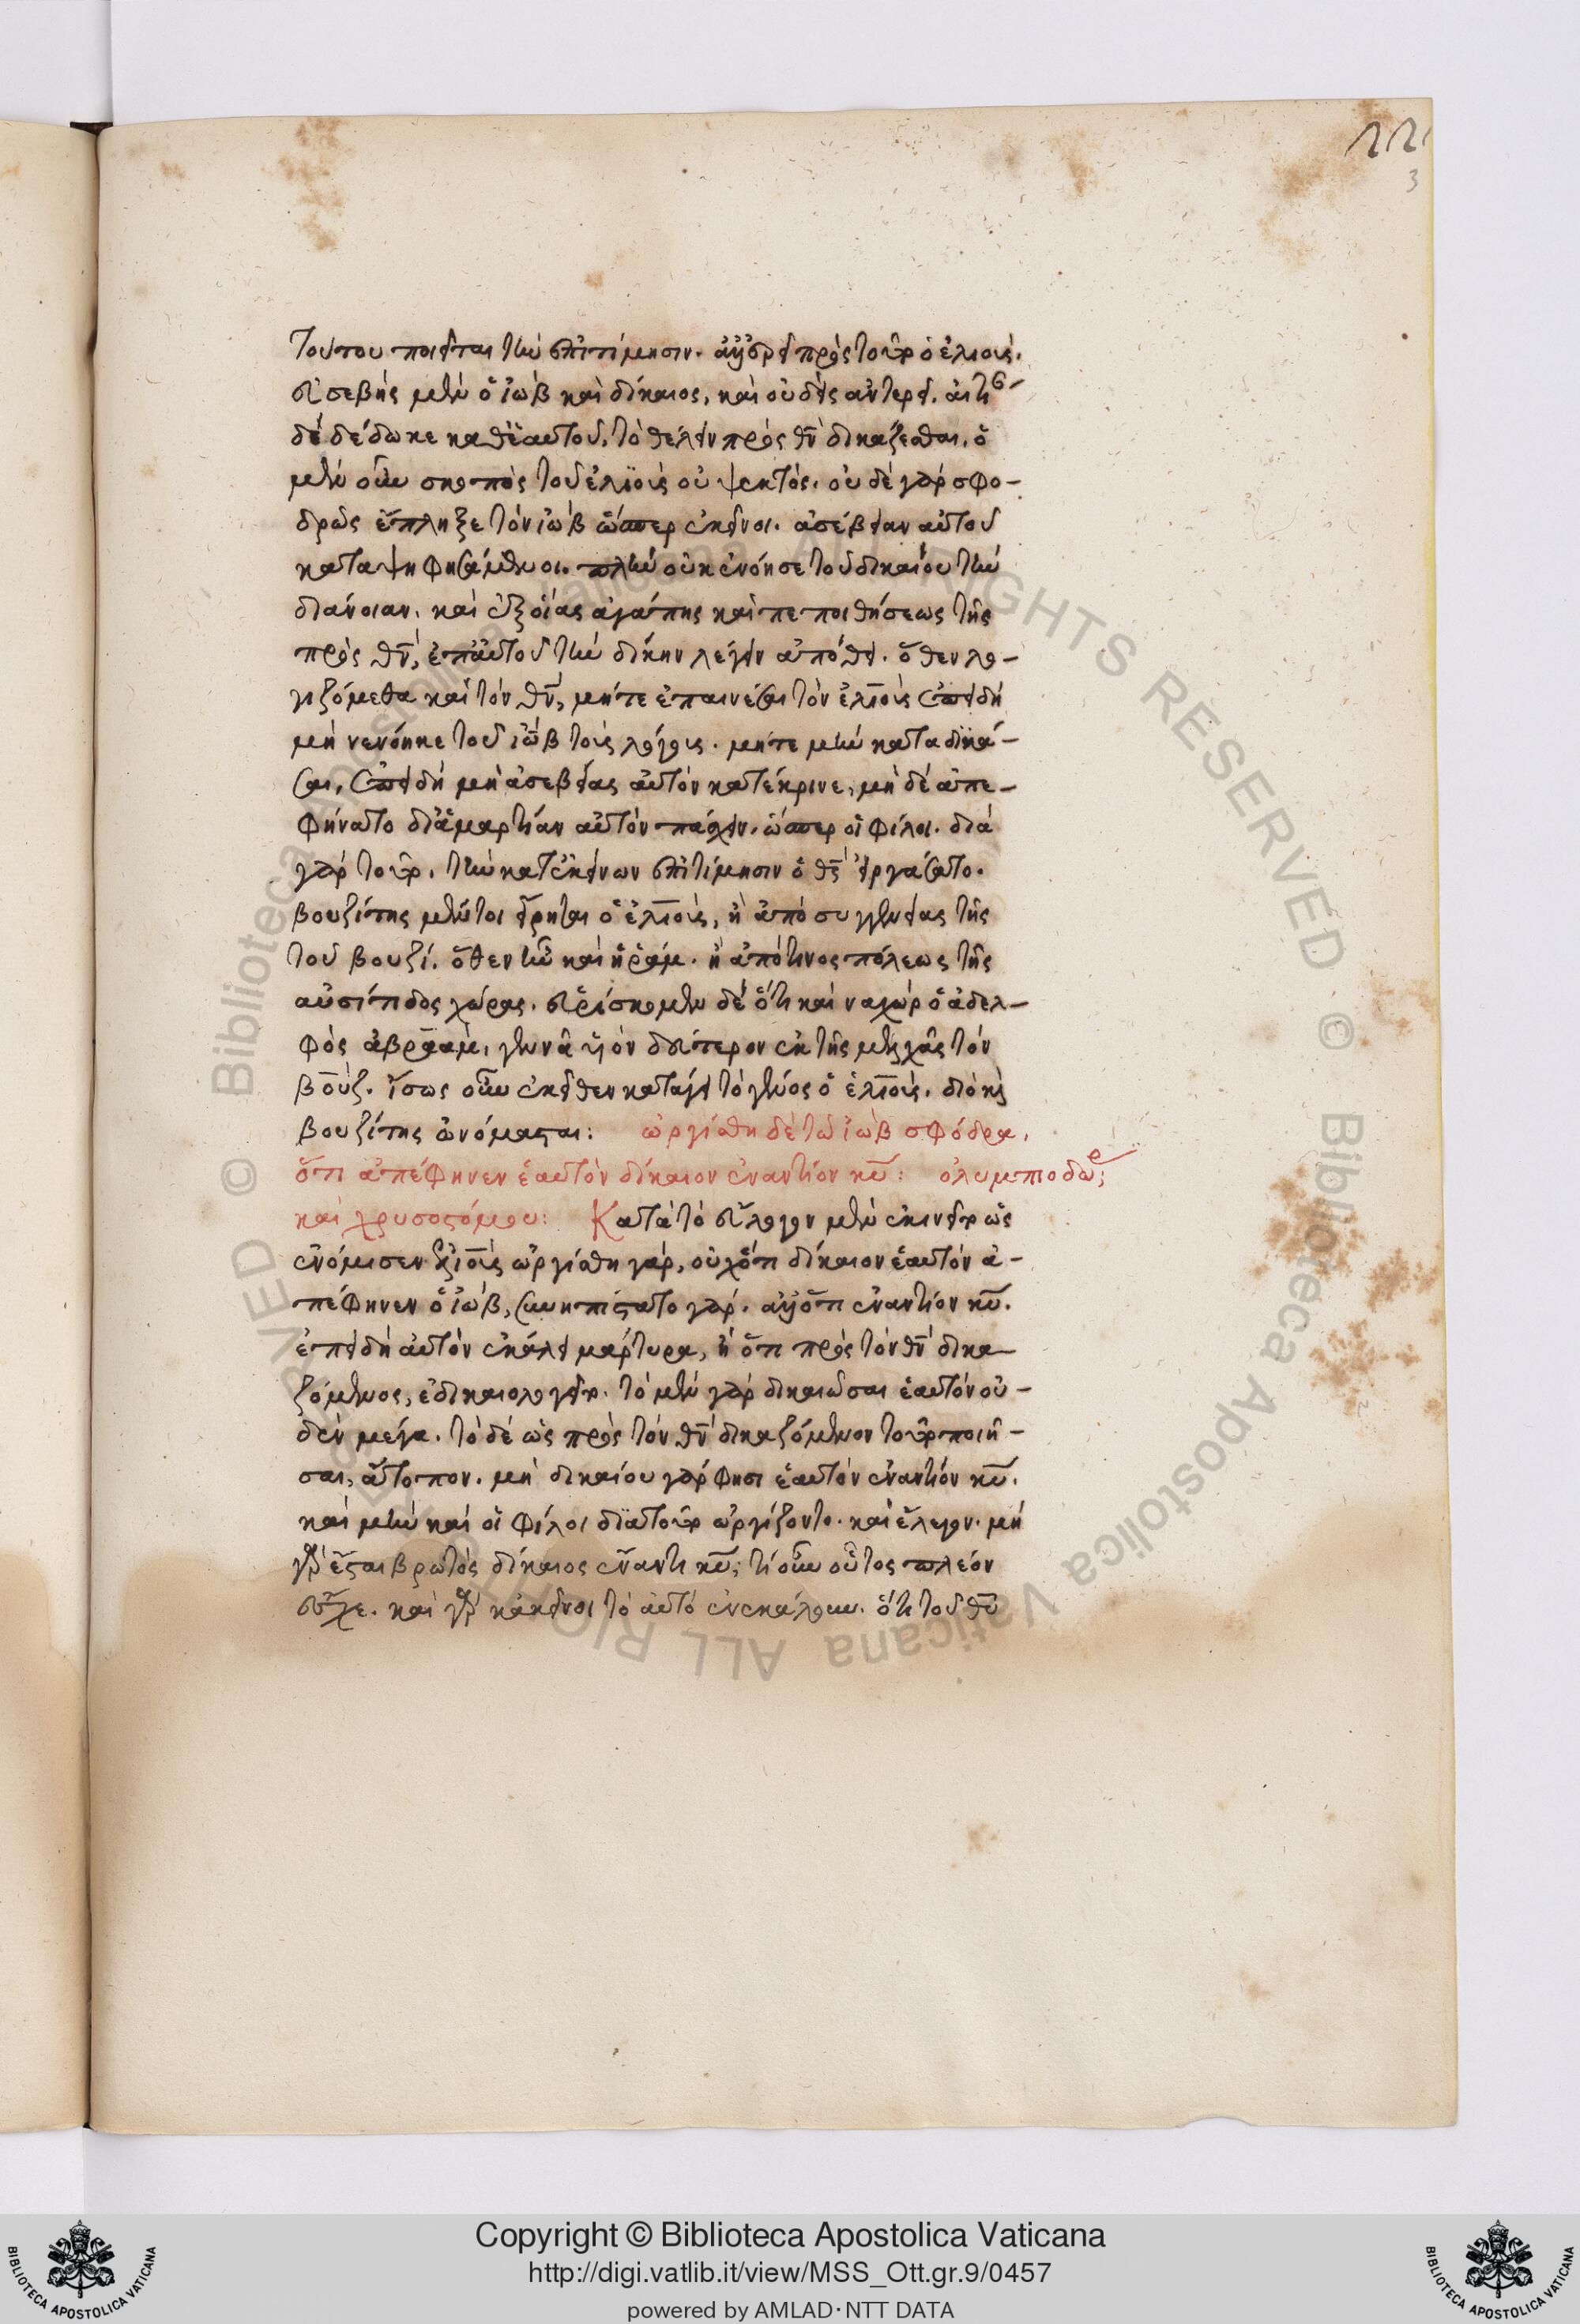 τούτου ποιεῖται τὴν ἐπιτίμησιν. ἀλλ' ἐρεῖ πρὸς τοῦτο ὁ ἐλιούς.
εὐσεβὴς μὲν ὁ ἰὼβ καὶ δίκαιος, καὶ οὐδεὶς ἀντερεῖ.
δὲ δέδωκε καθ' ἑαυτοῦ, τὸ θέλειν πρὸς θν δικάζεσθαι. ὁ
μὲν οὖν σκοπὸς τοῦ ἐλιοὺς οὐ ψεκτός. οὐδὲ γὰρ σφο-
δρῶς ἔπληξε τὸν ἰὼβ ὥσπερ ἐκεῖνοι. ἀσέβειαν αὐτοῦ
καταψηφισάμενοι. πλὴν οὐκ ἐνόησε τοῦ δικαίου τὴν
διάνοιαν. καὶ ἐξ οἵας ἀγάπης καὶ πεποιθήσεως τῆς
πρὸς θν, ἐπ' αὐτοῦ τὴν δίκην λέγειν ἐπόθει. ὅθεν λο-
γιζόμεθα καὶ τὸν θν, μήτε ἐπαινέσαι τὸν ἐλιοὺς ἐπειδὴ
μὴ νενόηκε τοῦ ἰὼβ τοὺς λόγους. μήτε μὴν καταδικά-
σαι, ἐπειδὴ μὴ ἀσεβείας αὐτὸν κατέκρινε, μὴ δὲ ἀπε-
φήνατο δι' ἁμαρτίαν αὐτὸν πάσχειν, ὥσπερ οἱ φίλοι. διὰ
γὰρ τοῦτο, τὴν κατ' ἐκείνων ἐπιτίμησιν ὁ θς εἰργάσατο.
βουζίτης μέντοι εἴρηται ὁ ἐλιοὺς, ἢ ἀπὸ συγγενείας τῆς
τοῦ βουζί. ὅθεν ἦν καὶ ἡ ῥάμ. ἢ ἀπό τινος πόλεως τῆς
αὐσίτιδος χώρας. εὑρίσκομεν δὲ ὅτι καὶ ναχὼρ ὁ ἀδελ-
φὸς ἀβραὰμ, γεννᾷ υἱὸν δεύτερον ἐκ τῆς μελχᾶς τὸν
βούζ. ἴσως οὖν ἐκεῖθεν κατάγει τὸ γένος ὁ ἐλιούς. διὸ καὶ
βουζίτης ὠνόμασται: ὠργίσθη δὲ τῷ ἰὼβ σφόδρα,
ὅτι ἀπέφηνεν ἑαυτὸν δίκαιον ἐναντίον κυ: ὀλυμπιοδώρ
καὶ χρυσοστόμου: Κατὰ τὸ εὔλογον μὲν ἐκινεῖτο ὡς
ἐνόμισεν ἐλιοῦς ὠργίσθη γάρ, οὐχ ὅτι δίκαιον ἑαυτὸν ἀ-
πέφηνεν ὁ ἰώβ, συνηπίστατο γάρ. ἀλλ' ὅτι ἐναντίον κυ.
ἐπειδὴ αὐτὸν ἐκάλει μάρτυρα, ἢ ὅτι πρὸς τὸν θν δικα
ζόμενος, ἐδικαιολογεῖτο. τὸ μὲν γὰρ δικαιῶσαι ἑαυτὸν οὐ-
δὲν μέγα. τὸ δὲ ὡς πρὸς τὸν θν δικαζόμενον τοῦτο ποιῆ-
σαι, ἄτοπον. μὴ δικαίου γάρ φησι ἑαυτὸν ἐναντίον κυ.
καὶ μὴν καὶ οἱ φίλοι διὰ τοῦτο ὠργίζοντο. καὶ ἔλεγον. μὴ
γὰρ ἔσται βροτὸς δίκαιος ἔναντι κυ; τί οὖν οὗτος πλέον
εἶχε. καὶ γὰρ κἀκεῖνοι τὸ αὐτὸ ἐνεκάλουν. ὅτι τοῦ θυ
3
Copyright © Biblioteca Apostolica Vaticana
http://digi.vatlib.it/view/MSS_Ott.gr.9/0457
powered by AMLAD·NTT DATA